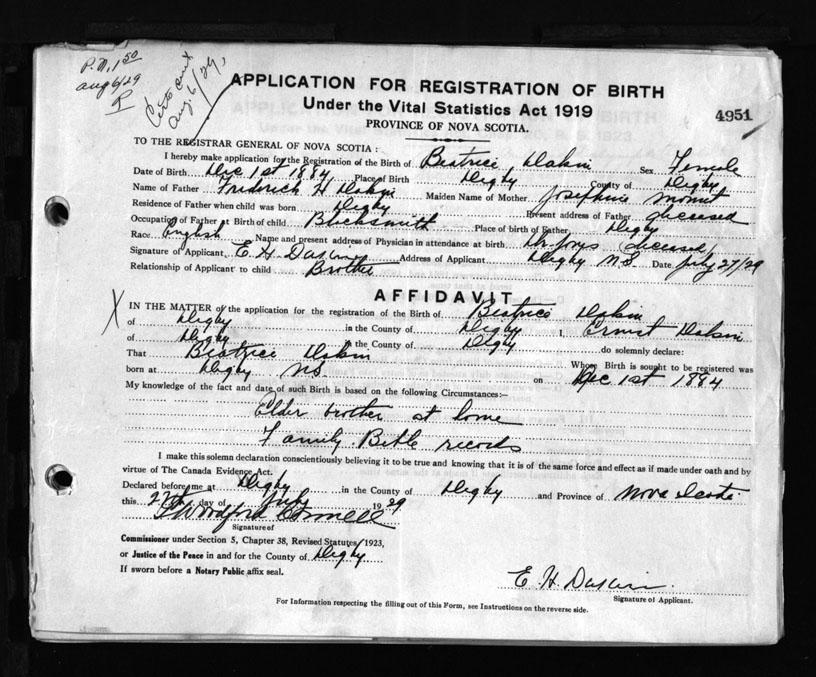 P.N. 1.50
Aug 6/29
Cert sent
Aug. 6/29.
APPLICATION FOR REGISTRATION OF BIRTH
Under the Vital Statistics Act 1919
PROVINCE OF NOVA SCOTIA.
4951
TO THE REGISTRAR GENERAL OF NOVA SCOTIA:
I hereby make application for the Registration of the Birth of Beatrice Dakin Sex Female
Date of Birth Dec 1st 1884 Place of Birth Digby County of Digby
Name of Father Frederick H Dakin Maiden Name of Mother Josephine
Residence of Father when child was born Digby Present address of Father deceased
Occupation of Father at Birth of child Blacksmith Place of birth of Father Digby
Race English Name and present address of Physician in attendance at birth Dr Jones (deceased)
Signature of Applicant E H Dakin Address of Applicant Digby N.S. Date July 27/29
Relationship of Applicant to child Brother
AFFIDAVIT
X IN THE MATTER of the application for the registration of the Birth of Beatrice Dakin
of Digby in the County of Digby I, Ernest Dakin
of Digby in the County of Digby do solemnly declare:
That Beatrice Dakin Whose Birth is sought to be registered was
born at Digby N.S. on Dec 1st 1884
My knowledge of the fact and date of such Birth is based on the following Circumstances:—
Elder brother at home
Family Bible records
I make this solemn declaration conscientiously believing it to be true and knowing that it is of the same force and effect as if made under oath and by
virtue of The Canada Evidence Act.
Declared before me at Digby in the County of Digby and Province of Nova Scotia
this 27th day of July 1929
Signature of
Commissioner under Section 5, Chapter 38, Revised Statutes, 1923,
or Justice of the Peace in and for the County of Digby
If sworn before a Notary Public affix seal.
E. H. Dakin.
Signature of Applicant.
For Information respecting the filling out of this Form, see Instructions on the reverse side.